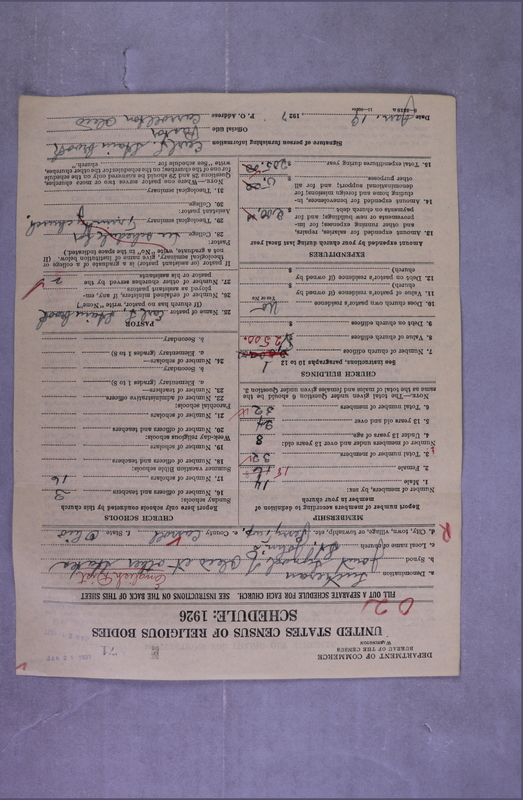 DEPARTMENT OF COMMERCE
BUREAU OF THE CENSUS
WASHINGTON
UNITED STATES CENSUS OF RELIGIOUS BODIES
SCHEDULE: 1926
FILL OUT SEPARATE SCHEDULE FOR EACH CHURCH. SEE INSTRUCTIONS ON THE BACK OF THIS SHEET
a. Denomination Lutheran
b. Synod Joint Synod of Ohio et other States
c. Local name of church St. John's
d. City, town, village, or township, etc. Perry twp. e. County Carroll f. State Ohio
MEMBERSHIP
Report number of members according to definition of member in your church
Number of members, by sex:
1. Male 14
2. Female
3. Total number of members 32
Number of members under and over 13 years old:
4. Under 13 years of age 8
5. 13 years old and over 24
6. Total number of members 32
NOTE.—The total given under Question 6 should be the same as the total of males and females given under Question 3.
CHURCH BUILDINGS
See instructions, paragraphs 10 to 12
7. Number of church edifices 1
8. Value of church edifices $2500.
9. Debt on church edifices $
10. Does church own pastor's residence No
Yes or No
11. Value of pastor's residence (if owned by church) $
12. Debt on pastor's residence (if owned by church) $
EXPENDITURES
Amount expended by your church during last fiscal year
13. Amount expended for salaries, repairs, and other running expenses; for improvements or new building; and for payments on church debt $200.00
14. Amount expended for benevolences, including home and foreign missions; for denominational support; and for all other purposes $5.00
15. Total expenditures during year $205.00
CHURCH SCHOOLS
Report here only schools conducted by this church
Sunday schools:
16. Number of officers and teachers 3
17. Number of scholars 16
Summer vacation Bible schools:
18. Number of officers and teachers
19. Number of scholars
Week-day religious schools:
20. Number of officers and teachers
21. Number of scholars
Parochial schools:
22. Number of administrative officers
23. Number of teachers—
a. Elementary (grades 1 to 8)
b. Secondary
24. Number of scholars—
a. Elementary (grades 1 to 8)
b. Secondary
PASTOR
25. Name of pastor
(If church has no pastor, write "None")
26. Number of ordained ministers, if any, employed as assistant pastors
27. Number of other churches served by the pastor or his assistants 2
If pastor (or assistant pastor) is a graduate of a college or theological seminary, give name of institution below. (If not a graduate, write "No" in the space indicated.)
Pastor:
28. College see schedule for
29. Theological seminary church.
Assistant pastor:
30. College
31. Theological seminary
NOTE.—Where one pastor serves two or more churches, Questions 28 and 29 should be answered only on the schedule for one of the churches; on the schedules for the other churches, write "See schedule for church."
Signature of person furnishing information
Official title Pastor
Date Jan. 19, 1927 P. O. Address Carrollton Ohio